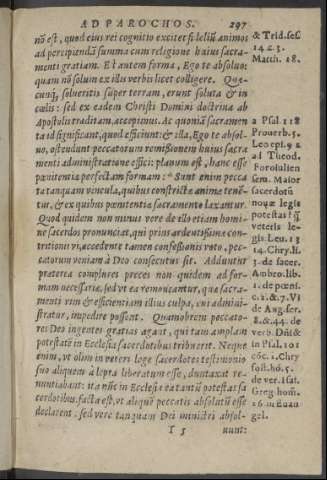 AD PAROCHOS. 297
nō est, quod eius rei cognitio excitet fidelium animos
ad percipiendā summa cum religione huius sacra-
menti gratiam. Est autem forma, Ego te absoluo:
quam nō solum ex illis verbis licet colligere. Quę-
cunq; solueritis super terram, erunt soluta & in
cœlis: sed ex eadem Christi Domini doctrina ab
Apostolis tradita, accepimus. Ac quoniā sacramen-
ta id significant, quod efficiunt: & illa, Ego te absol-
uo, ostendunt peccatorum remissionem huius sacra-
menti administratione effici: planum est, hanc esse
pœnitentia perfectam formam: Sunt enim pecca
ta tanquam vincula, quibus constrictæ animæ tenē-
tur, & ex quibus pœnitentiæ sacramento laxantur.
Quod quidem non minus vere de illo etiam homi-
ne sacerdos pronunciat, qui prius ardentissimæ con-
tritionis vi, accedente tamen confessionis voto, pec-
catorum veniam à Deo consecutus sit. Adduntur
præterea complures preces non quidem ad for-
mam necessariæ, sed vt ea remoueantur, quæ sacra-
menti vim & efficientiam illius culpa, cui admini-
stratur, impedire possent. Quamobrem peccato-
res Deo ingentes gratias agant, qui tam amplam
potestatē in Ecclesia sacerdotibus tribuerit. Neque
enim, vt olim in veteri lege sacerdotes testimonio
suo aliquem à lepra liberatum esse, duntaxat re-
nuntiabant: ita nūc in Ecclesia ea tantū potestas sa
cerdotibus facta est, vt aliquē peccatis absolutū esse
declarent: sed vere tanquam Dei ministri absol-
T 5 uunt:
& Trid. ses.
14 c. 3.
Matth. 18.
a Psal 118
Prouerb. 5.
Leo ep. 92
ad Theod.
Foroiulien
sem. Maior
sacerdotū
nouæ legis
potestas q̃
veteris le-
gis. Leu. 13
14. Chry. li.
3. de sacer.
Ambro. lib.
1. de pœni.
c. 2. & 7. Vi
de Aug. ser.
8. & 44. de
verb. Dñi &
in Psal. 101
cōc. 1. Chry
sost. hō. 5.
de ver. Isai.
Greg hom.
26 in Euan
gel.